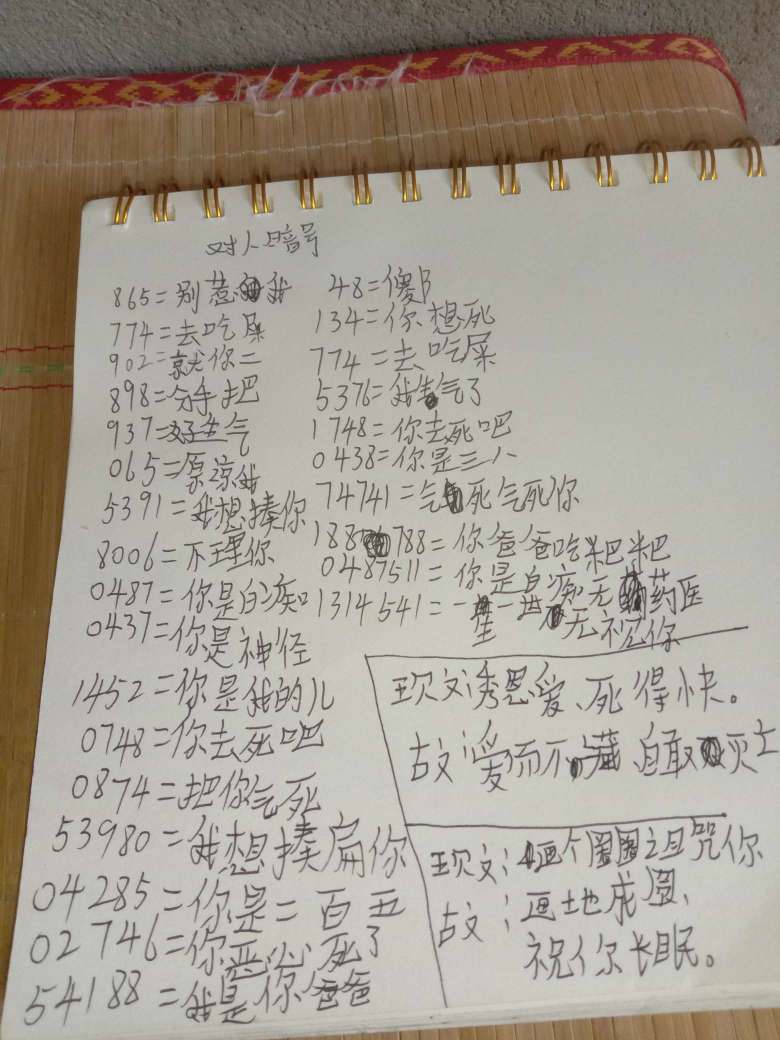 对人暗号
865=别惹我
774=去吃屎
902=就你二
898=分手把
937=好生气
065=原谅我
5391=我想揍你
8006=不理你
0487=你是白痴
0437=你是神径
1452=你是我的儿
0748=你去死吧
0874=把你气死
53980=我想揍扁你
04285=你是二百五
02746=你恶心死了
54188=我是你爸爸
48=傻B
134=你想死
774=去吃屎
5376=我生气了
1748=你去死吧
0438=你是三八
74741=气死气死你
188788=你爸爸吃粑粑
0487511=你是白痴无药医
1314541=一生一世无视你
现文:秀恩爱、死得快。
古文:爱而不藏、自取灭亡
现文:画个圈圈之且咒你
古文:画地成圆、
祝你长眠。